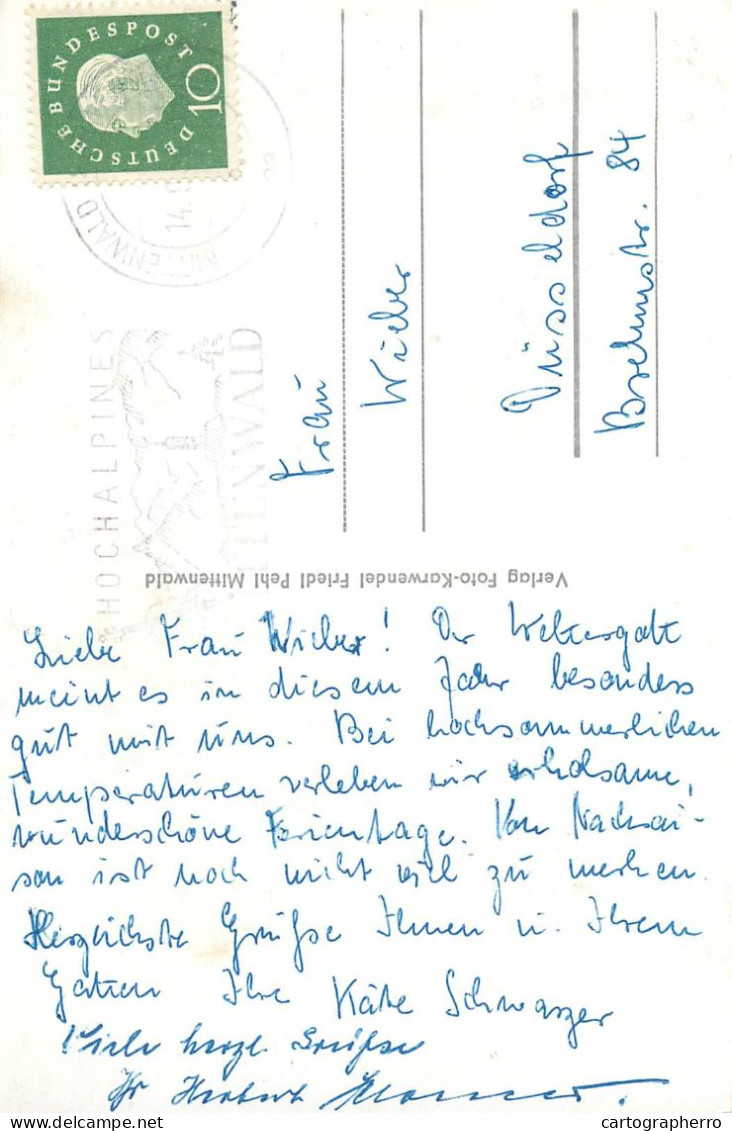 DEUTSCHE BUNDESPOST
10
MITTENWALD
14.
HOCHALPINES
MITTENWALD
Frau
Wieber
Düsseldorf
Verlag Foto-Karwendel Friedl Pehl Mittenwald
Liebe Frau Wieber! Der Wettergott
meint es in diesem Jahr besonders
gut mit uns. Bei hochsommerlichen
Temperaturen verleben wir erholsame,
wunderschöne Ferientage. Von Nachsai-
son ist noch nicht viel zu merken.
Herzlichste Grüße Ihnen u. Ihrem
Gatten Ihre Käte Schwarzer
Viele herzl. Grüße
Ihr Herbert
84
cartographerro